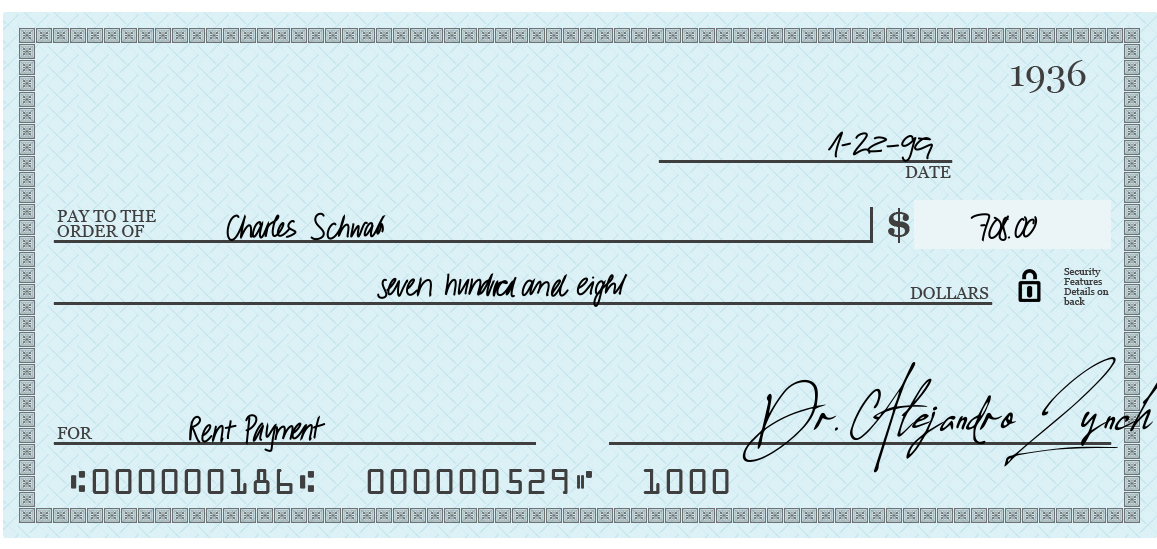 1936
1-22-99
DATE
PAY TO THE
ORDER OF Charles Schwab $ 708.00
seven hundred and eight DOLLARS
Security
Features
Details on
back
FOR Rent Payment Dr. Alejandro Lynch
⑆000000186⑆ 000000529⑈ 1000